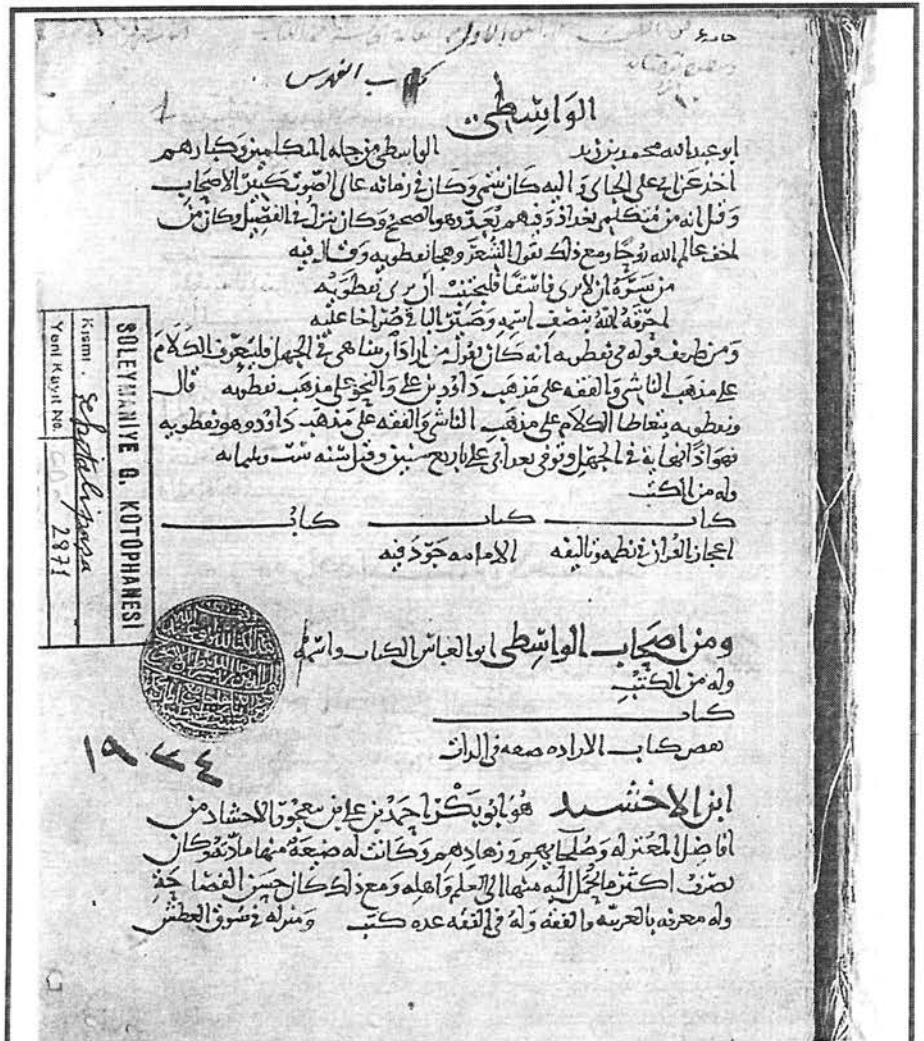 كتاب الفهرس
الواسطي
ابو عبد الله محمد بن زيد الواسطي من جلة المتكلمين وكبارهم
اخذ عن ابي علي الجبائي واليه كان ينتمي وكان في زمانه عالي الصوت كبير الاصحاب
وقيل انه من متكلمي بغداد وفيهم يعد وهو الصحيح وكان ينزل في الفصيل وكان من
اخف عالم الله روحا ومع ذلك يقول الشعر وهجا نفطويه وقال فيه
من سره ان لا يرى فاسقا فليجتنب ان يرى نفطويه
احرقه الله بنصف اسمه وصير الباقي صراخا عليه
ومن طريف قوله في نفطويه انه كان يقول من اراد ان يتناهى في الجهل فليعرف الكلام
على مذهب الناشي والفقه على مذهب داود بن علي والنحو على مذهب نفطويه قال
ونفطويه يتعاطا الكلام على مذهب الناشي والفقه على مذهب داود وهو نفطويه
فهو اذا نهاية في الجهل وتوفي بعد ابي علي باربع سنين وقيل سنه ست وثلثمائه
وله من الكتب
كتاب كتاب كتاب
اعجاز القران في نظمه وتاليفه الامامه جود فيه
ومن اصحاب الواسطي ابو العباس الكتاب واسمه
وله من الكتب
كتاب
نقض كتاب الاراده صفه في الذات
ابن الاخشيد هو ابو بكر احمد بن علي بن معجور الاخشاد من
افاضل المعتزله وصلحايهم وزهادهم وكانت له ضيعة منها مادته وكان
يصرف اكثر ما يحمل اليه منها الى العلم واهله ومع ذلك كان حسن الفصاحة
وله معرفه بالعربيه والفقه وله في الفقه عده كتب ومنزله في سوق العطش
SULEYMANIYE G. KUTOPHANESI
Kısmı. Şehidalipaşa
Yeni Kayıt No. 2971
١٩٣٤